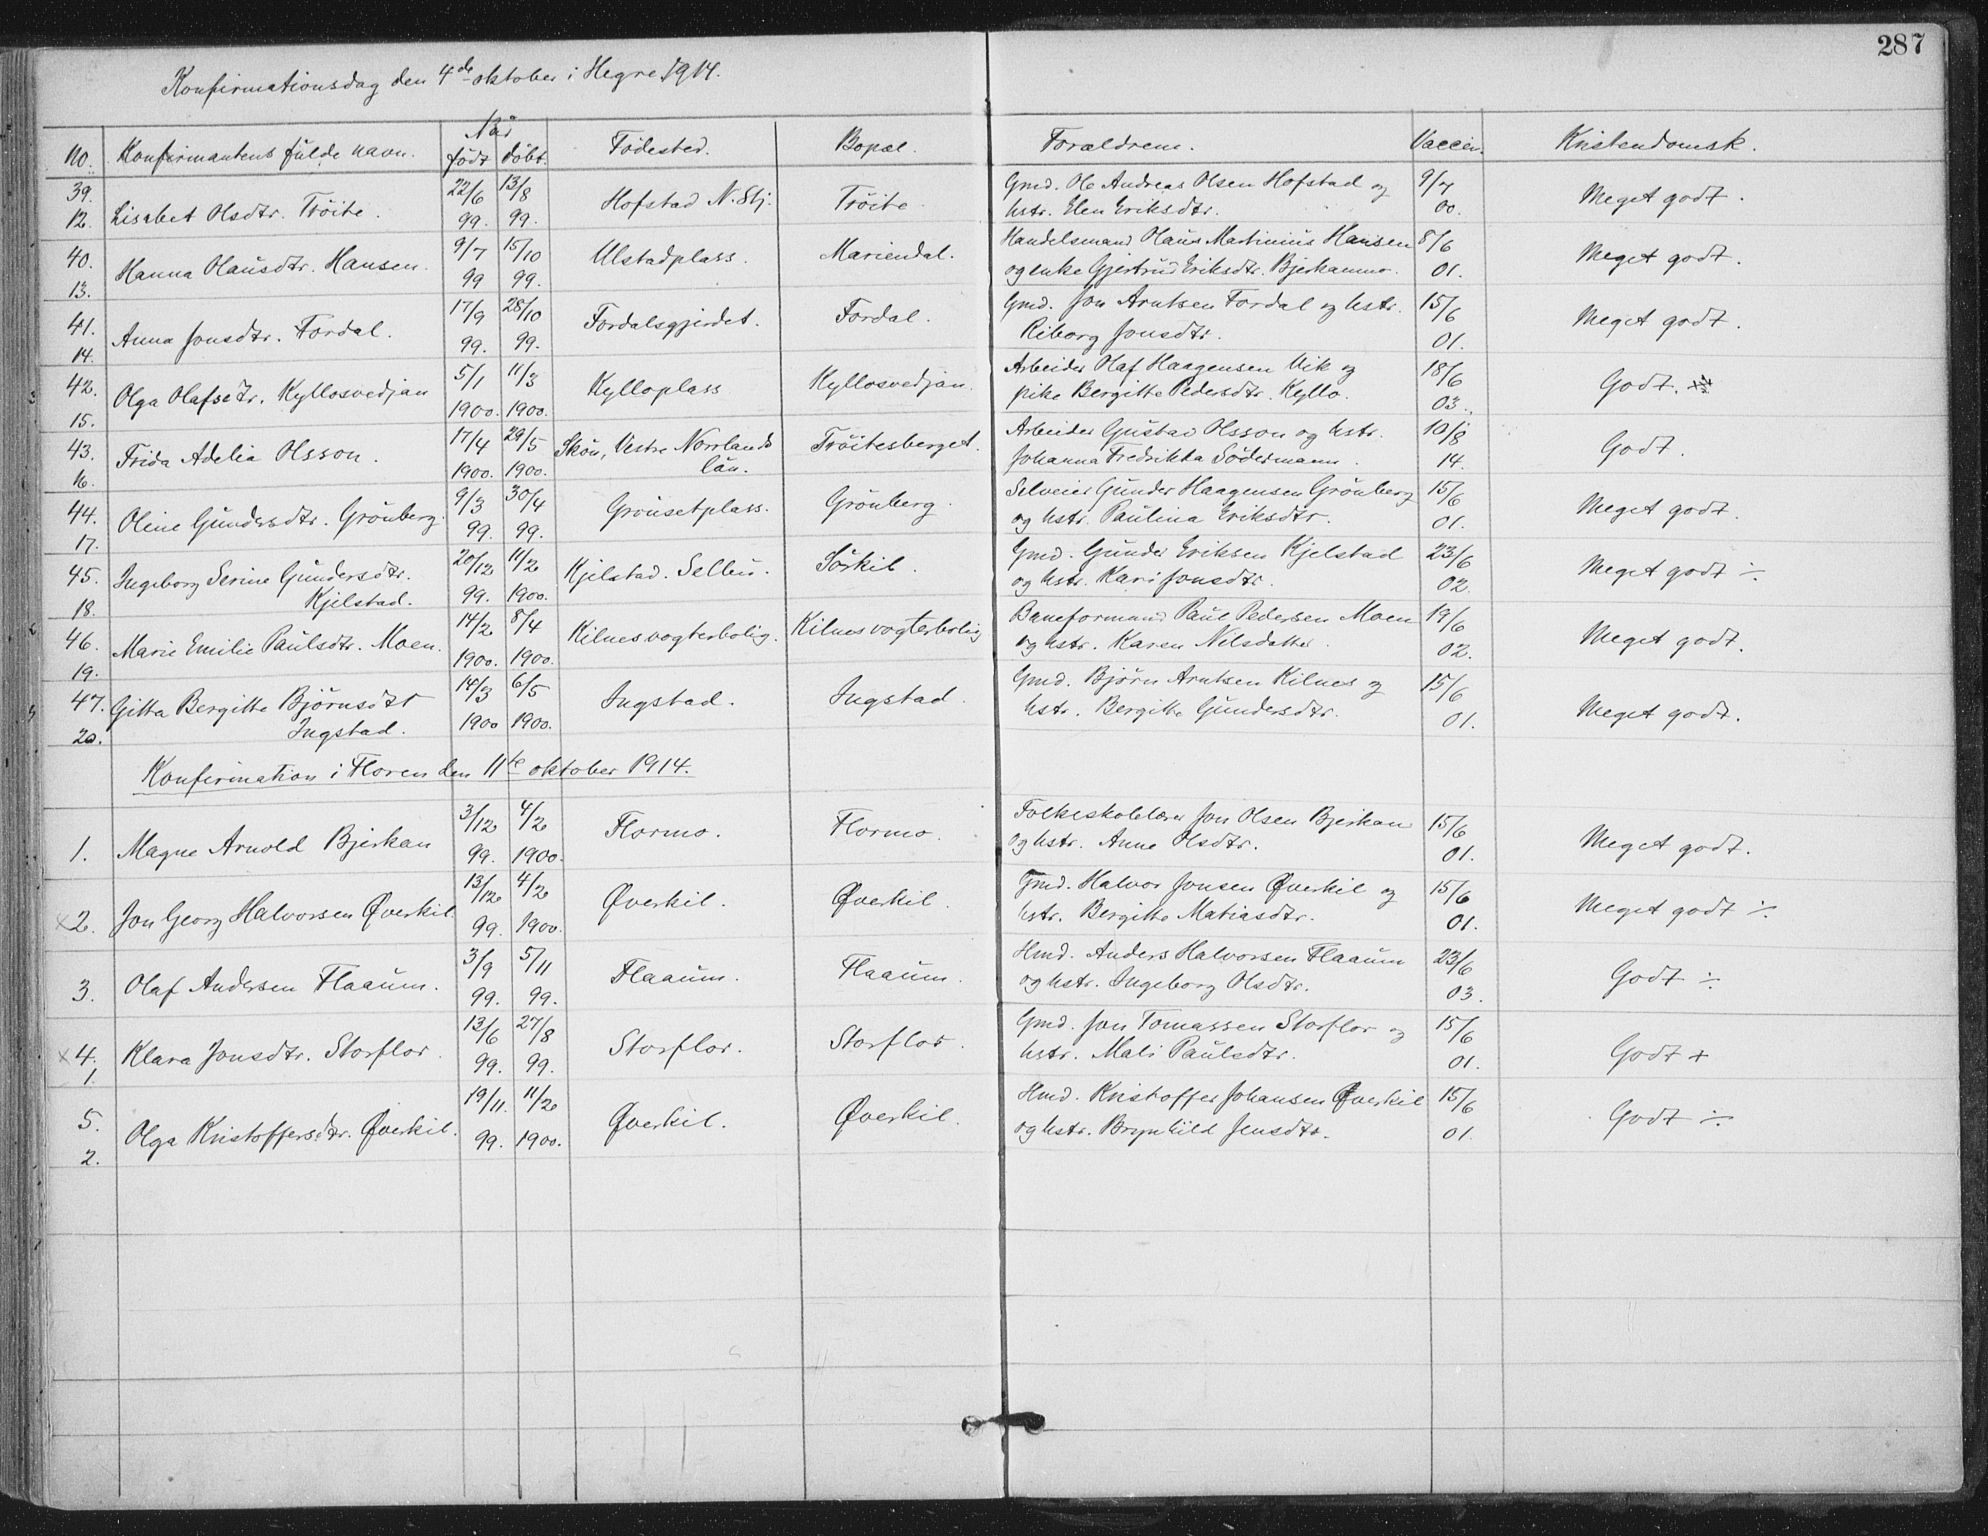 287
Konfirmationsdag den 4de oktober i Hegre 1914.
No. Konfirmantens fulde navn. Når født døbt. Födested. Bopæl. Forældrene. Vaccin. Kristendomsk.
39. 12. Lisabet Olsdtr. Tröite. 22/6 99. 13/8 99. Hofstad N. Stj. Tröite. Gmd. Ole Andreas Olsen Hofstad og hstr. Elen Eriksdtr. 9/7 00. Meget godt.
40. 13. Hanna Olausdtr. Hansen. 9/7 99 15/10 99. Ulstadplass. Mariendal. Handelsmand Olaus Martinius Hansen og enke Gjertrud Eriksdtr. Bjerkanmo. 8/6 01. Meget godt.
41. 14. Anna Jonsdtr. Fordal. 17/9 99. 28/10 99. Fordalsgjerdet. Fordal. Gmd. Jon Arntsen Fordal og hstr. Riborg Jonsdtr. 15/6 01. Meget godt.
42. 15. Olga Olafsdtr. Kyllosvedjan 5/1 1900. 11/3 1900. Kylloplass Kyllosvedjan. Arbeider Olaf Haagensen Vik og pike Bergitte Pedersdtr. Kyllo. 18/6 03. Godt.
43. 16. Frida Adelia Olsson. 17/4 1900. 29/5 1900. Skön, Vestre Norrlands län. Tröitesberget. Arbeider Gustav Olsson og hstr. Johanna Fredrikka Södermann. 10/8 14. Godt.
44. 17. Oline Gundersdtr. Grönberg. 9/3 99. 30/4 99. Grönsetplass. Grönberg. Selveier Gunder Haagensen Grönberg og hstr. Paulina Eriksdtr. 15/6 01. Meget godt.
45. 18. Ingeborg Serine Gundersdtr. Kjelstad. 20/12 99. 11/2 1900. Kjelstad. Selbu. Sörkil. Gmd. Gunder Eriksen Kjelstad og hstr. Kari Jonsdtr. 23/6 02. Meget godt ÷
46. 19. Marie Emilie Paulsdtr. Moen. 14/2 1900. 8/4 1900. Kilnes vogterbolig. Kilnes vogterbolig Baneformand Paul Pedersen Moen og hstr. Karen Nilsdatter. 19/6 02. Meget godt.
47. 20. Gitta Bergitte Bjørnsdtr Ingstad. 14/3 1900 6/5 1900. Ingstad. Ingstad. Gmd. Bjørn Arntsen Kilnes og hstr. Bergitte Gundersdtr. 15/6 01. Meget godt.
Konfirmation i Floren den 11te oktober 1914.
1. Magne Arnold Bjerkan 3/12 99. 4/2 1900. Flormo. Flormo. Folkeskolelærer Jon Olsen Bjerkan og hstr. Anne Olsdtr. 15/6 01. Meget godt.
×2. Jon Georg Halvorsen Øverkil. 13/12 99. 4/2 1900. Øverkil. Øverkil. Gmd. Halvor Jonsen Øverkil og hstr. Bergitte Matiasdtr. 15/6 01. Meget godt ÷
3. Olaf Andersen Flaaum. 3/9 99. 5/11 99. Flaaum. Flaaum. Hmd. Anders Halvorsen Flaaum og hstr. Ingeborg Olsdtr. 23/6 03. Godt ÷
×4. 1. Klara Jonsdtr. Storflor. 13/6 99. 27/8 99. Storflor. Storflor. Gmd. Jon Tomassen Storflor og hstr. Mali Paulsdtr. 15/6 01. Godt +
5. 2. Olga Kristoffersdtr. Øverkil. 19/11. 99. 11/2 1900. Øverkil. Øverkil. Hmd. Kristoffer Johansen Øverkil og hstr. Brynhild Jensdtr. 15/6 01. Godt ÷